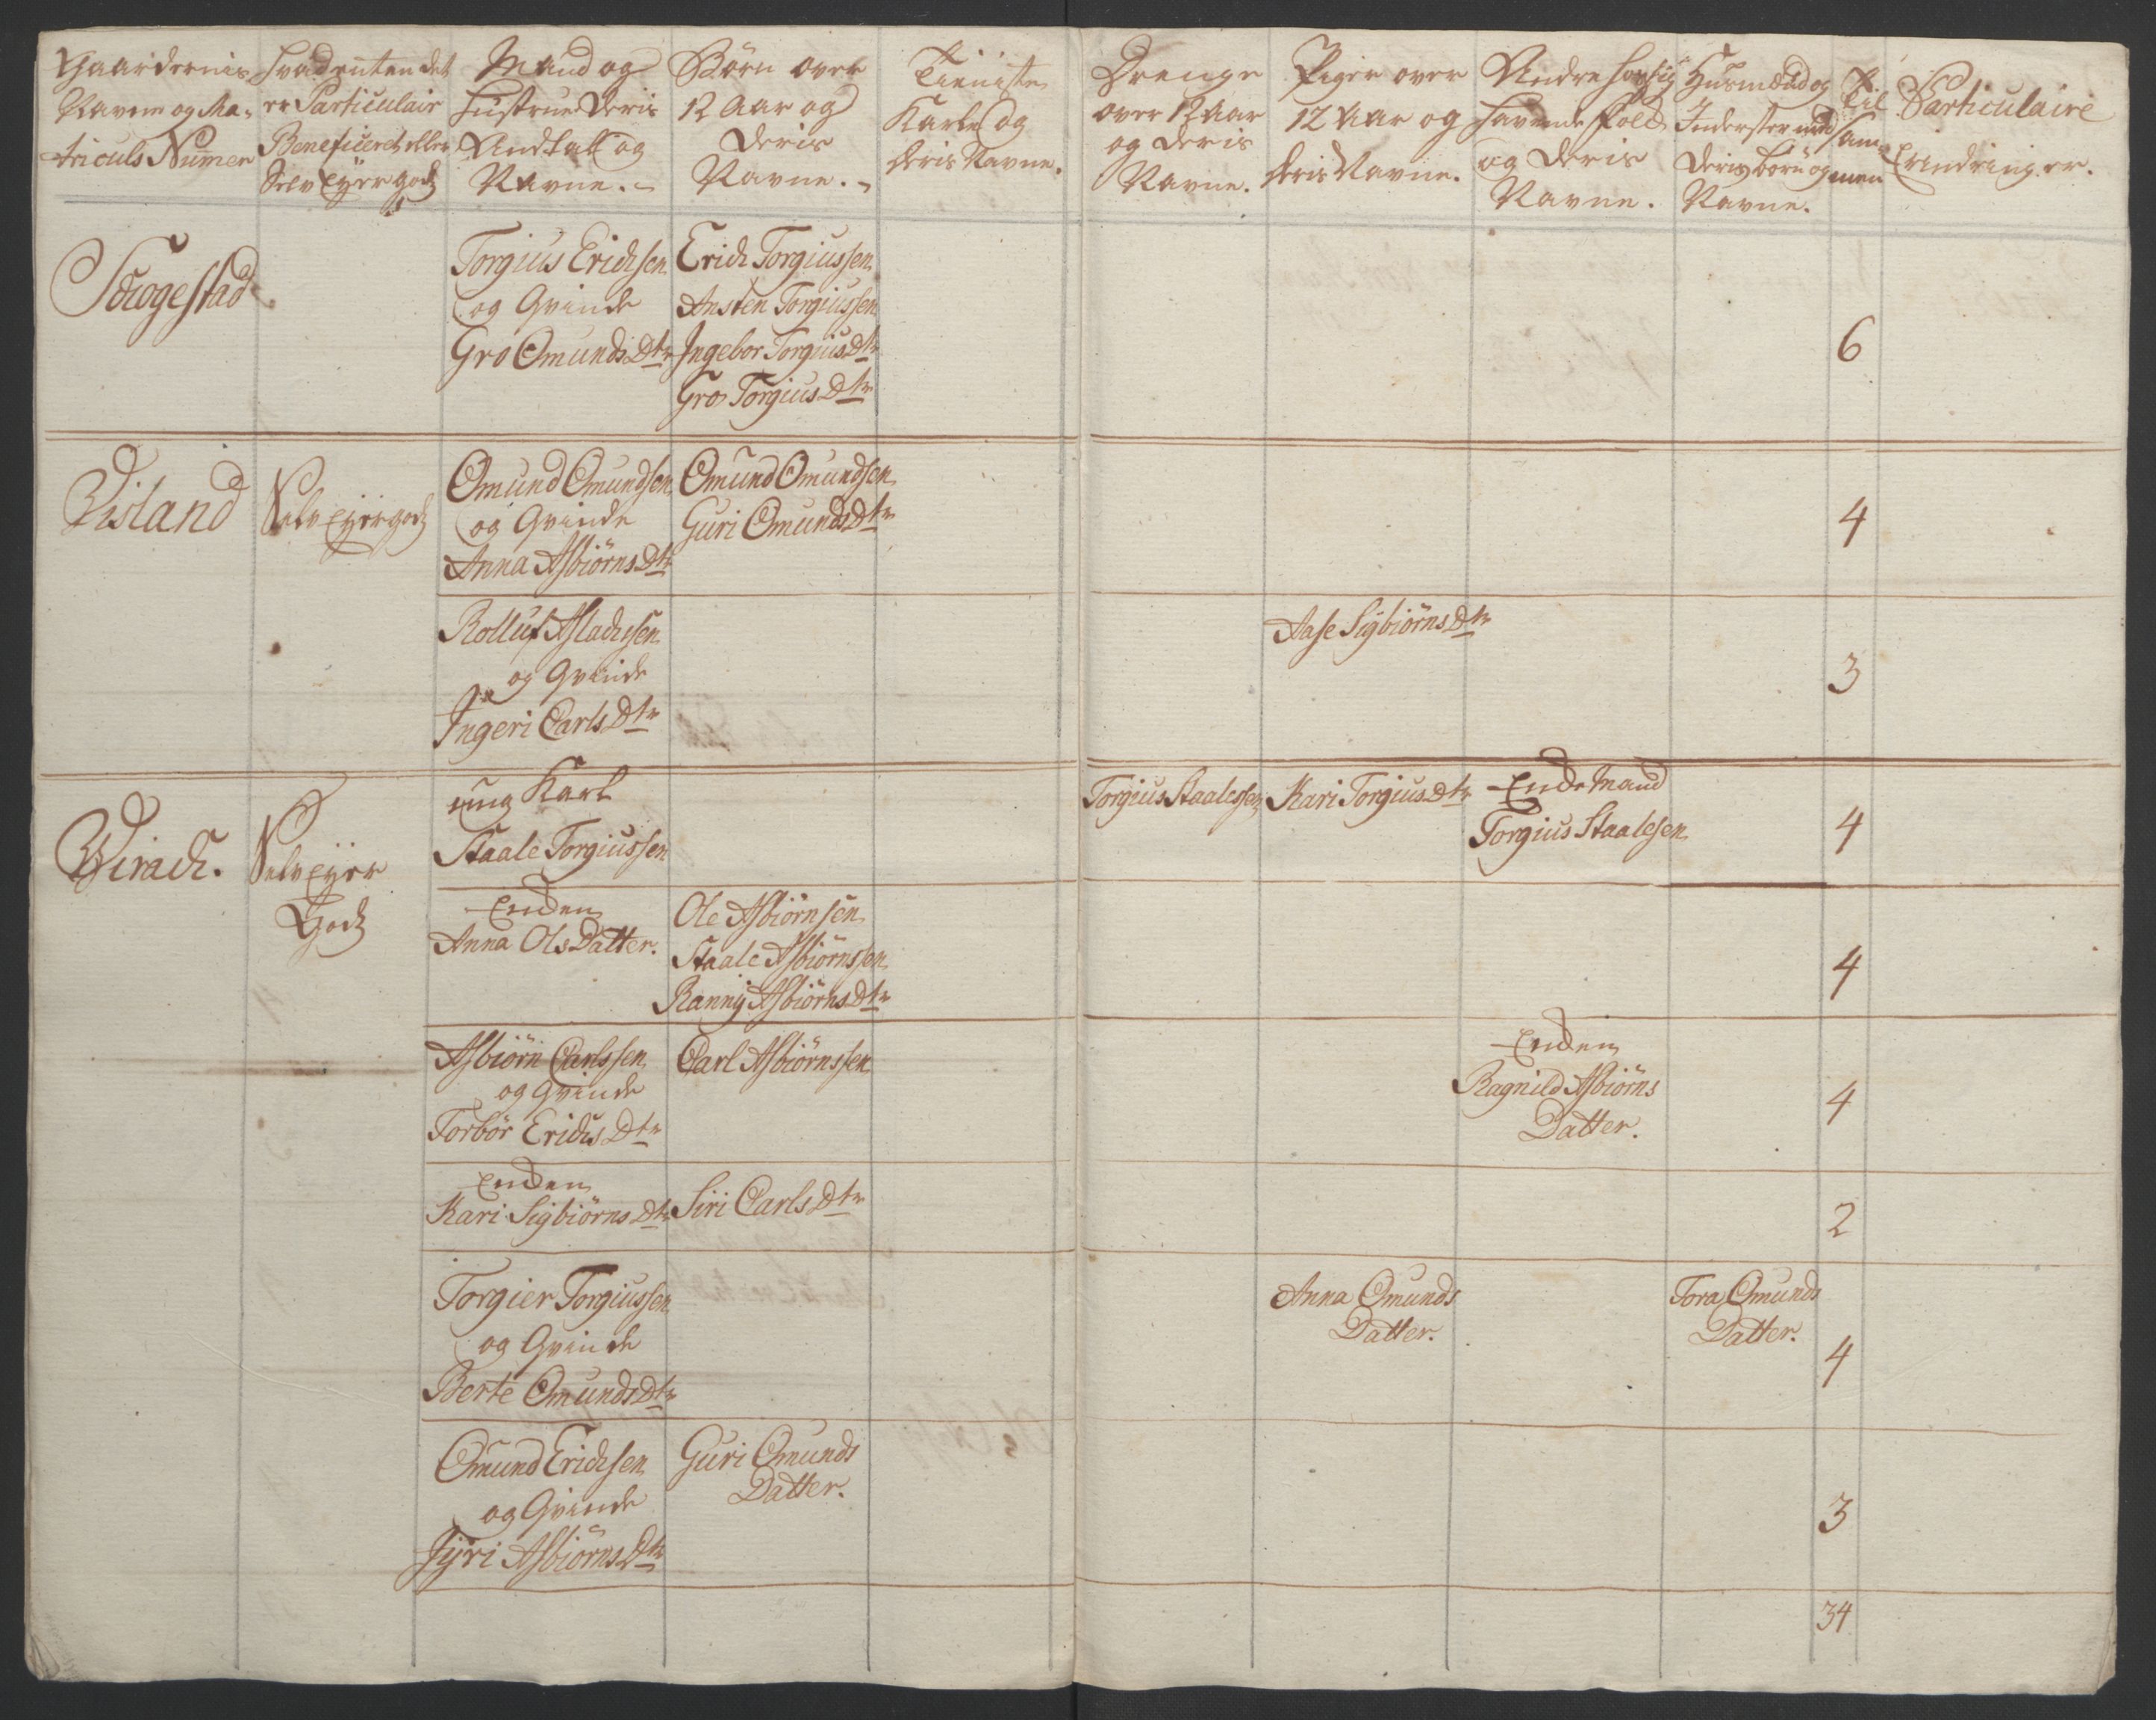 Gaardernis
Navne og Ma-
triculs Numer
Hvad enten det
er Particulair
Beneficeret eller
Selv Eyer godz
Mand og
Hustrue Deris
Andtall og
Navne. -
Børn over
12 Aar og
Deris
Navne. -
Tieniste
Karle og
deris Navne.
Drenge
over 12 Aar
og deris
Navne.
Piger over
12 Aar og
deris Navne.
Andre hos sig
havende Folk
og Deris
Navne.
Husmænd og
Inderster med
deris børn og
Navne.
Til
Sam-
men
Particulaire
Erindringer.
Torgius Erichsen
og Qvinde
Gro Omunds Dtr
Erich Torgiussen
Ansten Torgiussen
Ingebor Torgius Dtr
Gro Torgius Dtr
6
Visland
Selv Eyer godz
Omund Omundsen
og Qvinde
Anna Asbiørns Dtr
Omund Omundsen
Guri Omunds Dtr
4
Rolluf Aslachsen
og Qvinde
Ingeri Carls Dtr
Aase Sigbiørns Dtr
3
Virach.
Selv Eyer
Godz
ung Karl
Staale Torgiussen
Torgius Staalesen
Kari Torgius Dtr
Encke Mand
Torgius Staalesen
4
Encken
Anna Ols Datter.
Ole Asbiørnsen
Staale Asbiørnssen
Ranny Asbiørns Dtr
4
Asbiørn Carlssen
og Qvinde
Torbør Erichs Dtr
Carl Asbiørnssen
Encken
Ragnild Asbiørns
Datter.
4
Encken
Kari Sigbiørns Dtr
Siri Carls Dtr
2
Torgier Torgiussen
og Qvinde
Berte Omunds Dtr
Anna Omunds
Datter.
Tora Omunds
Datter.
4
Omund Erichsen
og Qvinde
Jyri Asbiørns Dtr
Guri Omunds
Datter.
3
34